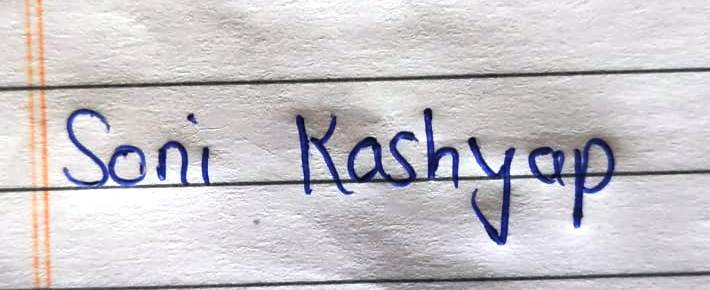 Soni Kashyap